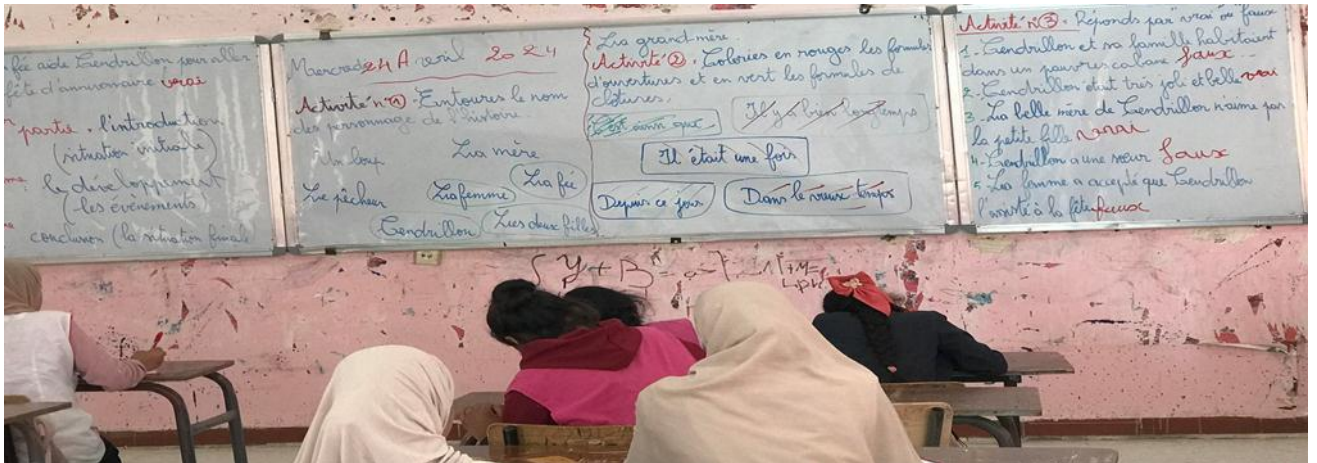 fée aide Cendrillon pour aller
fête d'anniversaire vrai
partie . l'introduction
(situation initiale)
le développement
(les événements
conclusion (la situation finale
Mercredi 24 Avril 2024
Activité n°1) - Entoures le nom
des personnage de l'histoire.
Un loup La mère
Le pêcheur La femme La fée
Cendrillon Les deux filles
La grand-mère.
Activité 2). Colories en rouges les formules
d'ouvertures et en vert les formules de
clôtures.
C'est ainsi que Il y a bien longtemps
Il était une fois
Depuis ce jour Dans le vieux temps
Activité n°3). Réponds par "vrai ou faux
1 - Cendrillon et sa famille habitaient
dans un pauvres cabane faux
2 - Cendrillon était très joli et belle vrai
3 - La belle mère de Cendrillon n'aime pas
la petite fille vrai
4 - Cendrillon a une sœur faux
5 - La femme a accepté que Cendrillon
l'assiste à la fête faux